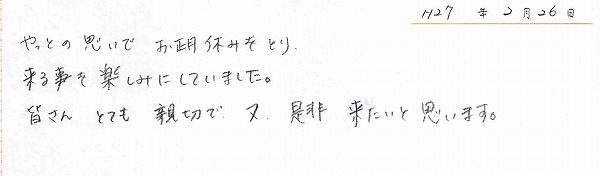 H27 年 2 月 26 日
やっとの思いで お正月休みをとり、
来る事を楽しみにしていました。
皆さん とても 親切で 又、是非 来たいと思います。